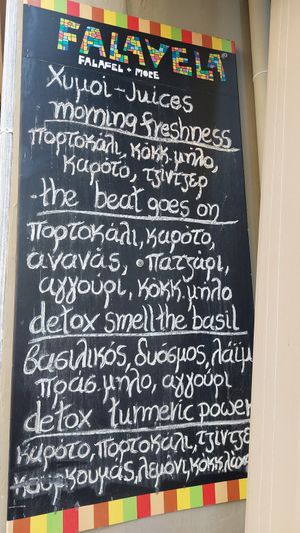 FALAVELA
FALAFEL + MORE
Χυμοί - Juices
morning freshness
πορτοκάλι, κόκκ. μήλο,
καρότο, τζίντζερ
the beat goes on
πορτοκάλι, καρότο,
ανανάς, πατζάρι,
αγγούρι, κόκκ. μήλο
detox smell the basil
βασιλικός, δυόσμος, λάιμ
πράσ. μήλο, αγγούρι
detox turmeric power
καρότο, πορτοκάλι, τζίντζε
κουρκουμάς, λεμόνι, κόκκ.